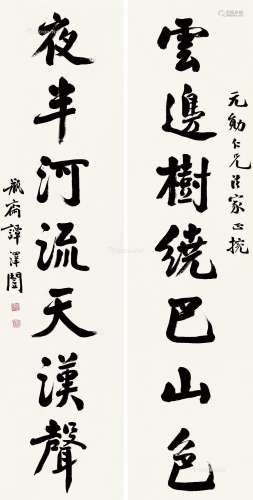 元勛仁兄法家正
雲邊樹繞巴山色
夜半河流天漢聲
瓶齋譚澤闓